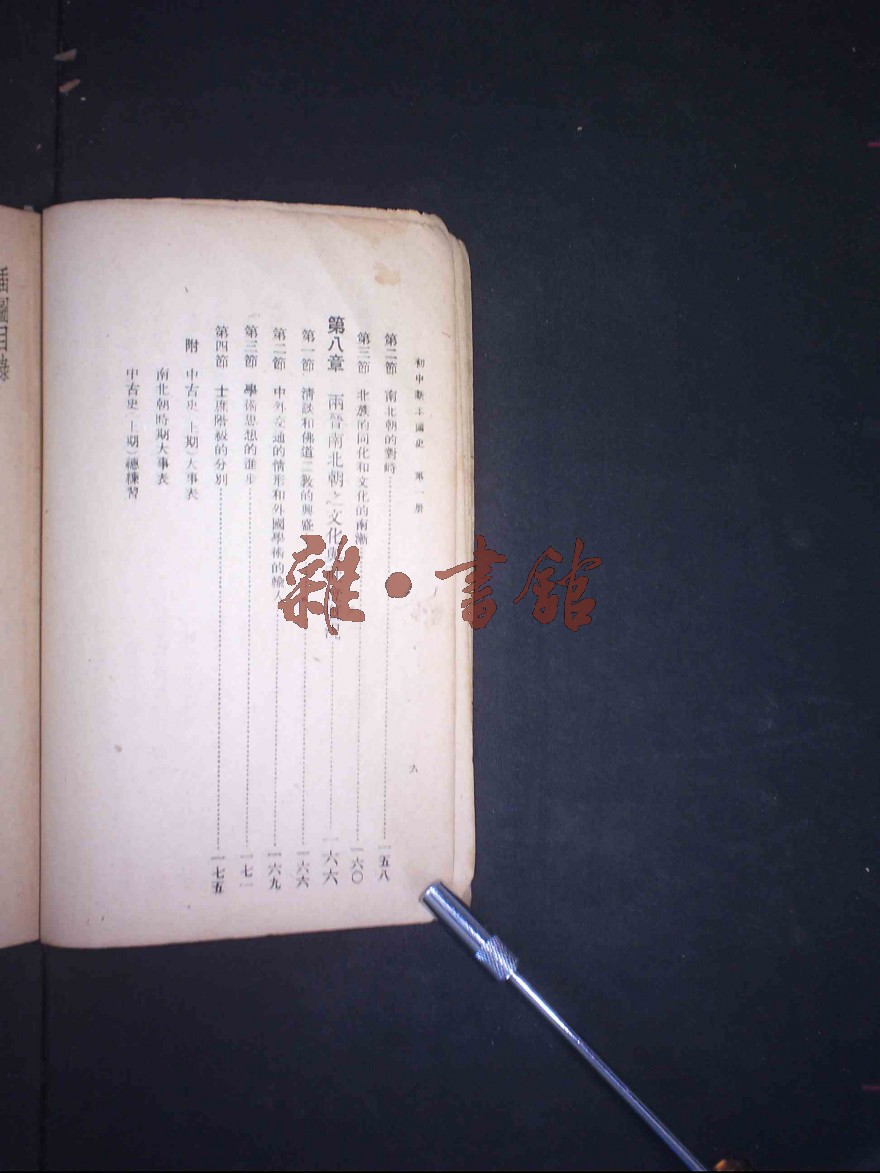 初中新本國史　第一册
六
第二節　南北朝的對峙……一五八
第三節　北族的同化和文化的南漸……一六〇
第八章　兩晉南北朝之文化與……一六六
第一節　清談和佛道二教的興盛……一六六
第二節　中外交通的情形和外國學術的輸入……一六九
第三節　學術思想的進步……一七一
第四節　士庶階級的分別……一七五
附　中古史(上期)大事表
南北朝時期大事表
中古史(上期)總練習
插圖目錄
雜·書館